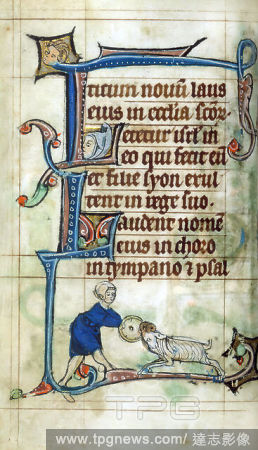 ticum nouū laus
eius in ecclia scōr
Letetur isrl in
eo qui fecit eū
et filie syon exul
tent in rege suo.
Laudent nomē
eius in choro
in tympano ⁊ psal
TPG
www.tpgnews.com / 達志影像